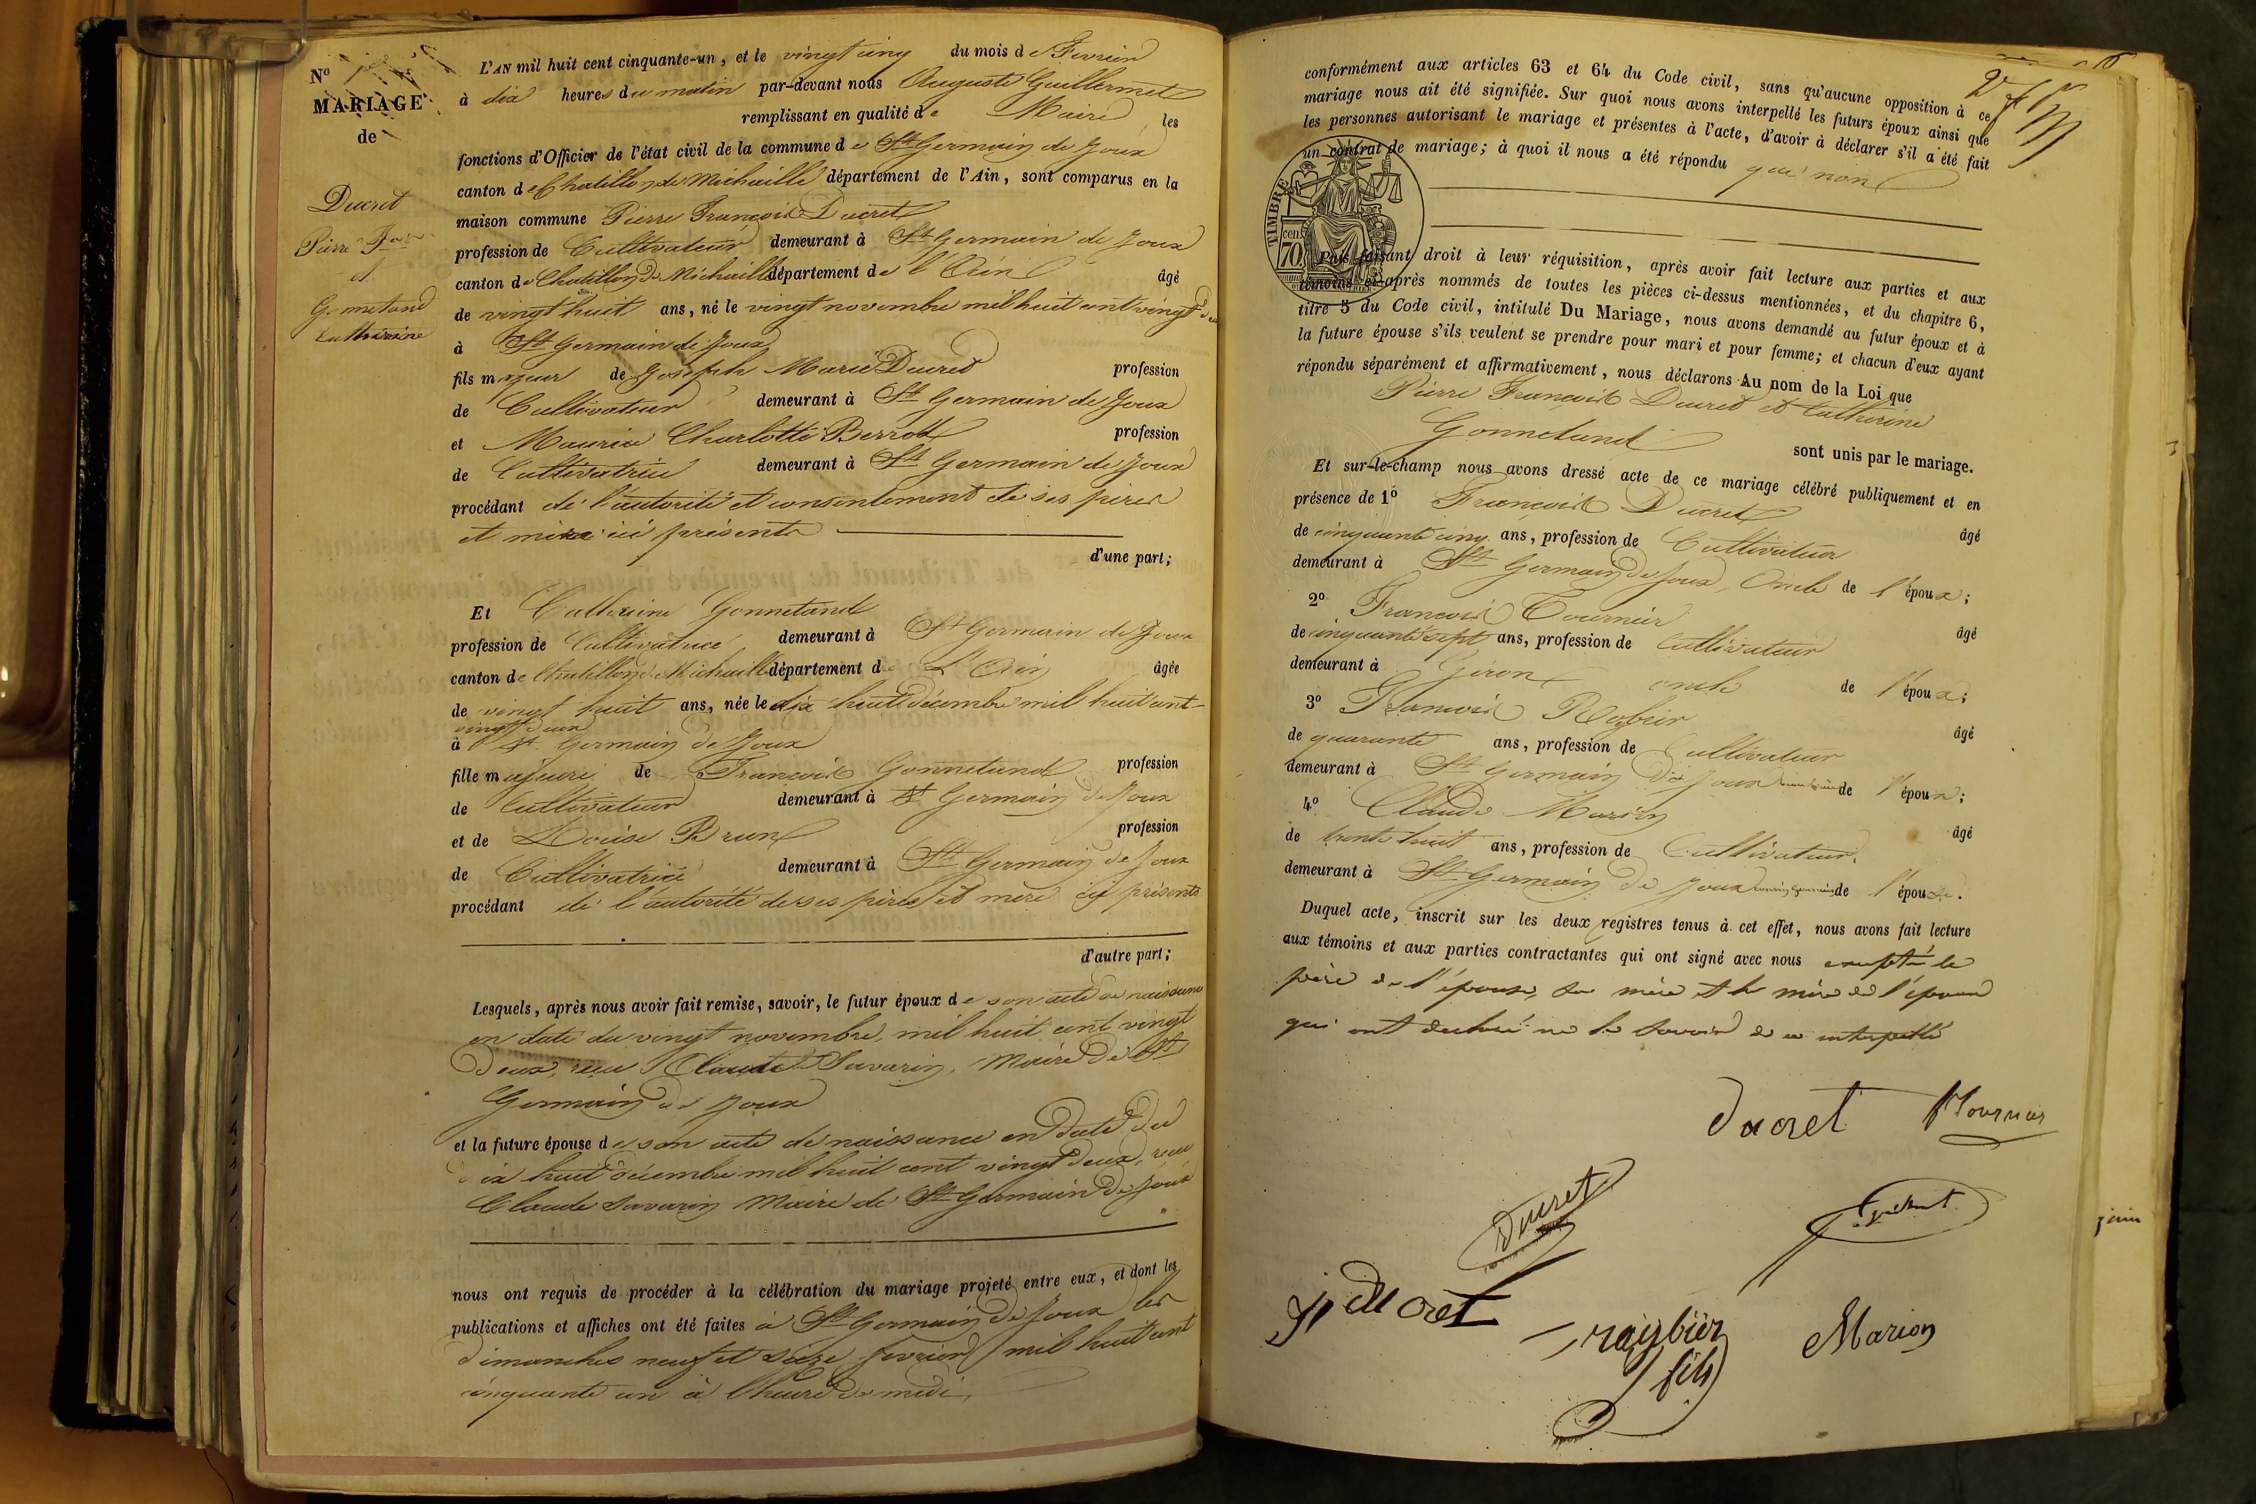 N°
MARIAGE
de
Ducret
Pierre Fois
et
Gonnetand
Catherine
L'AN mil huit cent cinquante-un, et le vingt cinq du mois de Fevrier
à dix heures du matin par-devant nous Auguste Guillermet
remplissant en qualité de Maire les
fonctions d'Officier de l'état civil de la commune de St Germain de Joux
canton de Chatillon de Michaille département de l'Ain, sont comparus en la
maison commune Pierre François Ducret
profession de Cultivateur demeurant à St Germain de Joux
canton de Chatillon de Michaille département de l'Ain âgé
de vingt huit ans, né le vingt novembre mil huit cent vingt deux
à St Germain de Joux
fils majeur de Joseph Marie Ducret profession
de Cultivateur demeurant à St Germain de Joux
et Maurise Charlotte Berrod profession
de Cultivatrice demeurant à St Germain de Joux
procédant de l'autorité et consentement de ses père
et mère ici présents
d'une part;
Et Catherine Gonnetand
profession de Cultivatrice demeurant à St Germain de Joux
canton de Chatillon de Michaille département de L'Ain âgée
de vingt huit ans, née le dix huit décembre mil huit cent
vingt deux
à St Germain de Joux
fille majeure de François Gonnetand profession
de Cultivateur demeurant à St Germain de Joux
et de Louise Brun profession
de Cultivatrice demeurant à St Germain de Joux
procédant de l'autorité de ses père et mère ici présents
d'autre part;
Lesquels, après nous avoir fait remise, savoir, le futur époux de son acte de naissance
en date du vingt novembre, mil huit cent vingt
deux, reçu Claude Savarin, Maire de St
Germain de Joux
et la future épouse de son acte de naissance en date du
dix huit décembre mil huit cent vingt deux, reçu
Claude Savarin Maire de St Germain de Joux
nous ont requis de procéder à la célébration du mariage projeté entre eux, et dont les
publications et affiches ont été faites à St Germain de Joux les
dimanches neuf et seize fevrier mil huit cent
cinquante un à l'heure de midi,
conformément aux articles 63 et 64 du Code civil, sans qu'aucune opposition à ce
mariage nous ait été signifiée. Sur quoi nous avons interpellé les futurs époux ainsi que
les personnes autorisant le mariage et présentes à l'acte, d'avoir à déclarer s'il a été fait
un contrat de mariage; à quoi il nous a été répondu que non
TIMBRE
70 cen.
Puis faisant droit à leur réquisition, après avoir fait lecture aux parties et aux
témoins ci-après nommés de toutes les pièces ci-dessus mentionnées, et du chapitre 6,
titre 5 du Code civil, intitulé Du Mariage, nous avons demandé au futur époux et à
la future épouse s'ils veulent se prendre pour mari et pour femme; et chacun d'eux ayant
répondu séparément et affirmativement, nous déclarons Au nom de la Loi que
Pierre François Ducret et Catherine
Gonnetand sont unis par le mariage.
Et sur-le-champ nous avons dressé acte de ce mariage célébré publiquement et en
présence de 1° François Ducret âgé
de cinquante cinq ans, profession de Cultivateur
demeurant à St Germain de Joux, Oncle de l'époux;
2° François Tournier âgé
de cinquante sept ans, profession de Cultivateur
demeurant à Giron oncle de l'époux;
3° François Raybier âgé
de quarante ans, profession de Cultivateur
demeurant à St Germain de Joux de l'époux;
4° Claude Marion âgé
de trente huit ans, profession de Cultivateur
demeurant à St Germain de Joux cousin germain de l'épouse.
Duquel acte, inscrit sur les deux registres tenus à cet effet, nous avons fait lecture
aux témoins et aux parties contractantes qui ont signé avec nous excepté le
père de l'épouse, sa mère et la mère de l'époux
qui ont declaré ne le savoir de ce interpellé
ducret
Tournier
Ducret
ducret
raybier
fils
Marion
juin